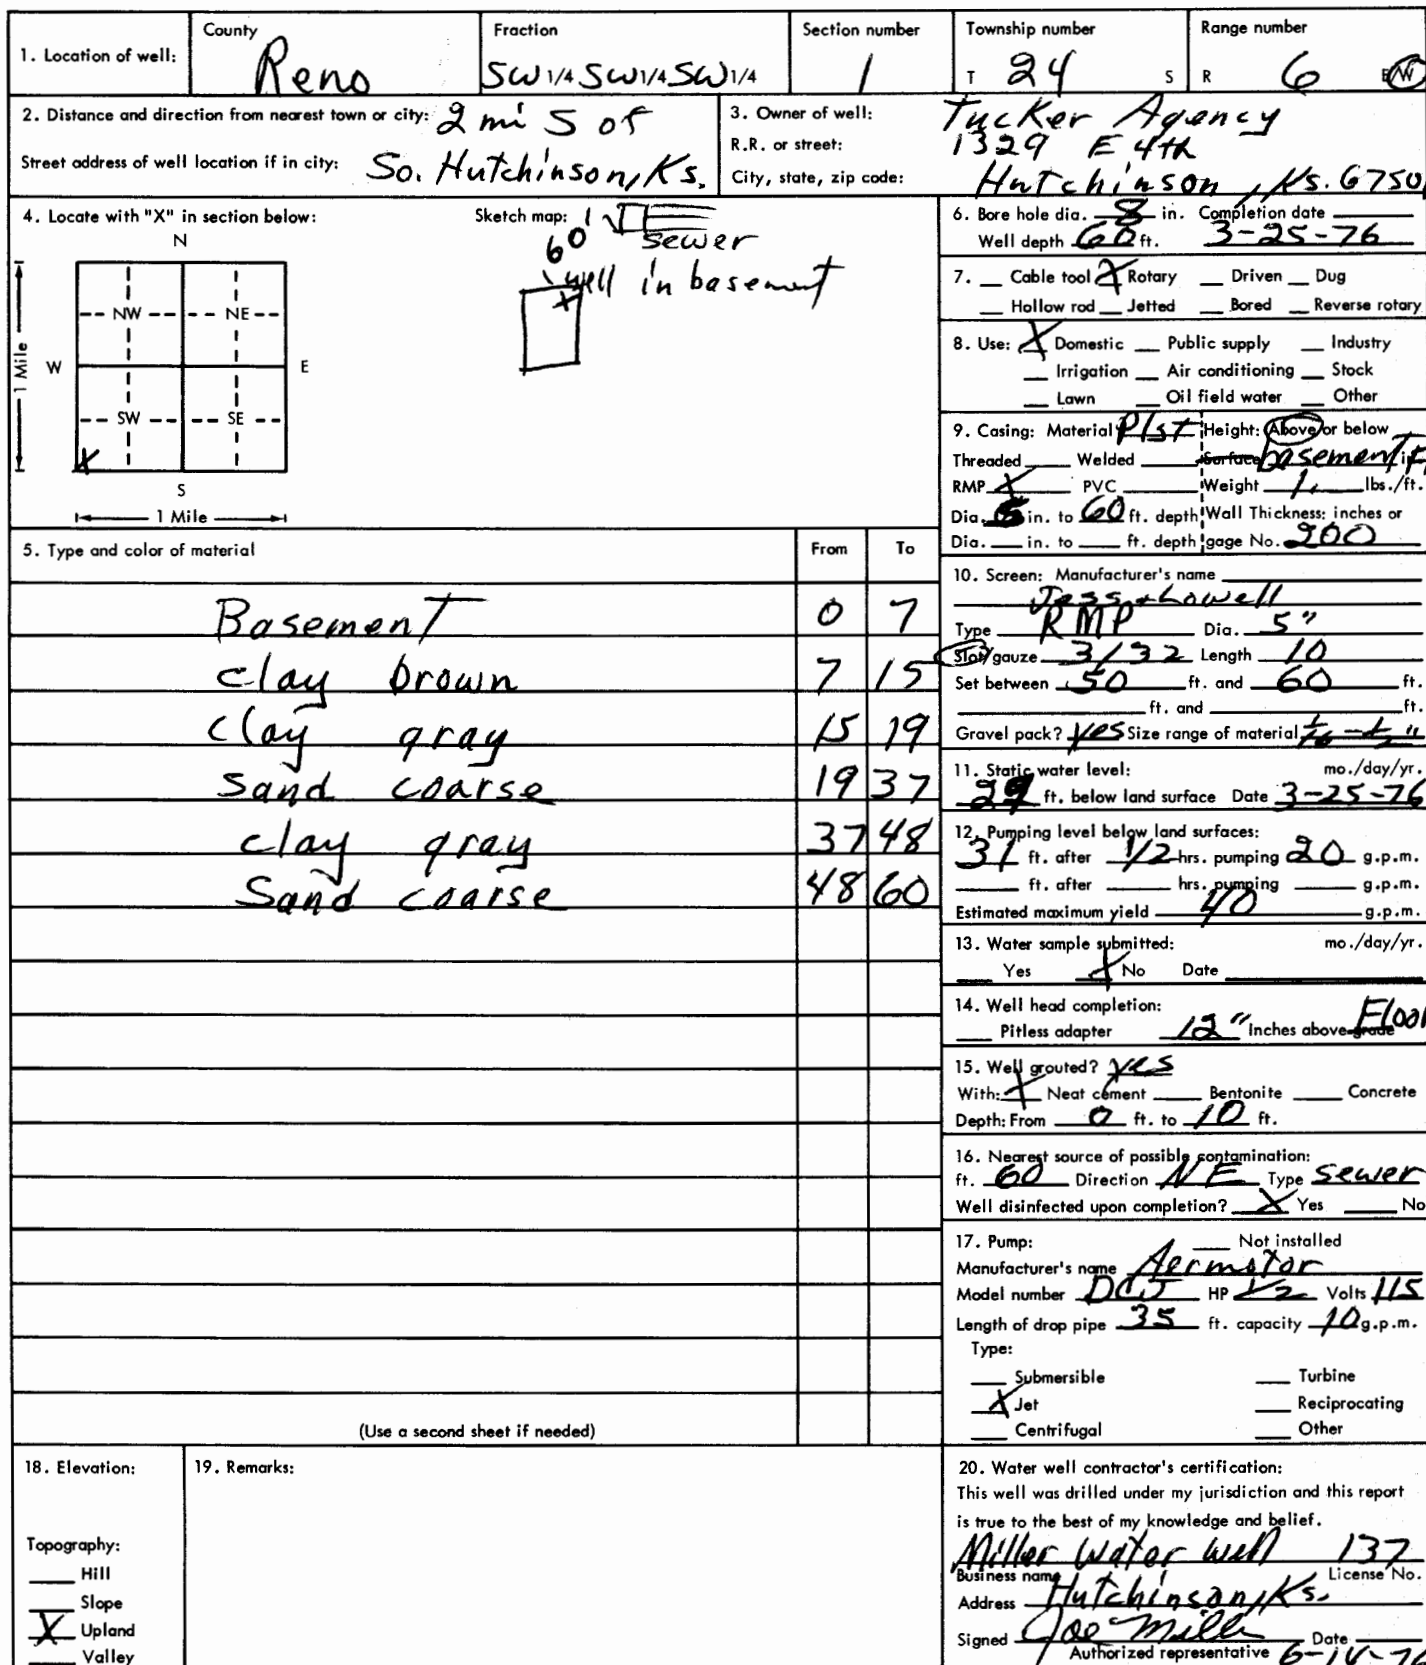 1. Location of well: County Reno Fraction SW 1/4 SW 1/4 SW 1/4 Section number 1 Township number T 24 S Range number R 6 E/W
2. Distance and direction from nearest town or city: 2 mi S of
Street address of well location if in city: So. Hutchinson, Ks.
3. Owner of well: Tucker Agency
R.R. or street: 1329 E 4th
City, state, zip code: Hutchinson, Ks. 6750
4. Locate with "X" in section below:
N
NW NE
W E
SW SE
X
S
1 Mile
1 Mile
Sketch map:
60'
sewer
well in basement
X
5. Type and color of material From To
Basement 0 7
clay brown 7 15
clay gray 15 19
Sand coarse 19 37
clay gray 37 48
Sand coarse 48 60
(Use a second sheet if needed)
6. Bore hole dia. 8 in. Completion date
Well depth 60 ft. 3-25-76
7. Cable tool X Rotary Driven Dug
Hollow rod Jetted Bored Reverse rotary
8. Use: X Domestic Public supply Industry
Irrigation Air conditioning Stock
Lawn Oil field water Other
9. Casing: Material Plst Height: Above or below
Threaded Welded Surface basement
RMP X PVC Weight 1. lbs./ft.
Dia. 5 in. to 60 ft. depth Wall Thickness: inches or
Dia. in. to ft. depth gage No. 200
10. Screen: Manufacturer's name
Jess & Lowell
Type RMP Dia. 5"
Slot/gauze 3/32 Length 10
Set between 50 ft. and 60 ft.
ft. and ft.
Gravel pack? yes Size range of material 1/16 - 1/2"
11. Static water level: mo./day/yr.
29 ft. below land surface Date 3-25-76
12. Pumping level below land surfaces:
31 ft. after 1/2 hrs. pumping 20 g.p.m.
ft. after hrs. pumping g.p.m.
Estimated maximum yield 40 g.p.m.
13. Water sample submitted: mo./day/yr.
Yes X No Date
14. Well head completion:
Pitless adapter 12" Inches above grade Floor
15. Well grouted? yes
With: X Neat cement Bentonite Concrete
Depth: From 0 ft. to 10 ft.
16. Nearest source of possible contamination:
ft. 60 Direction NE Type sewer
Well disinfected upon completion? X Yes No
17. Pump: Not installed
Manufacturer's name Aermotor
Model number DCJ HP 1/2 Volts 115
Length of drop pipe 35 ft. capacity 10 g.p.m.
Type:
Submersible Turbine
X Jet Reciprocating
Centrifugal Other
18. Elevation:
Topography:
Hill
Slope
X Upland
Valley
19. Remarks:
20. Water well contractor's certification:
This well was drilled under my jurisdiction and this report
is true to the best of my knowledge and belief.
Miller Water Well 137
Business name License No.
Address Hutchinson, Ks.
Signed Joe Miller Date
Authorized representative 6-14-76